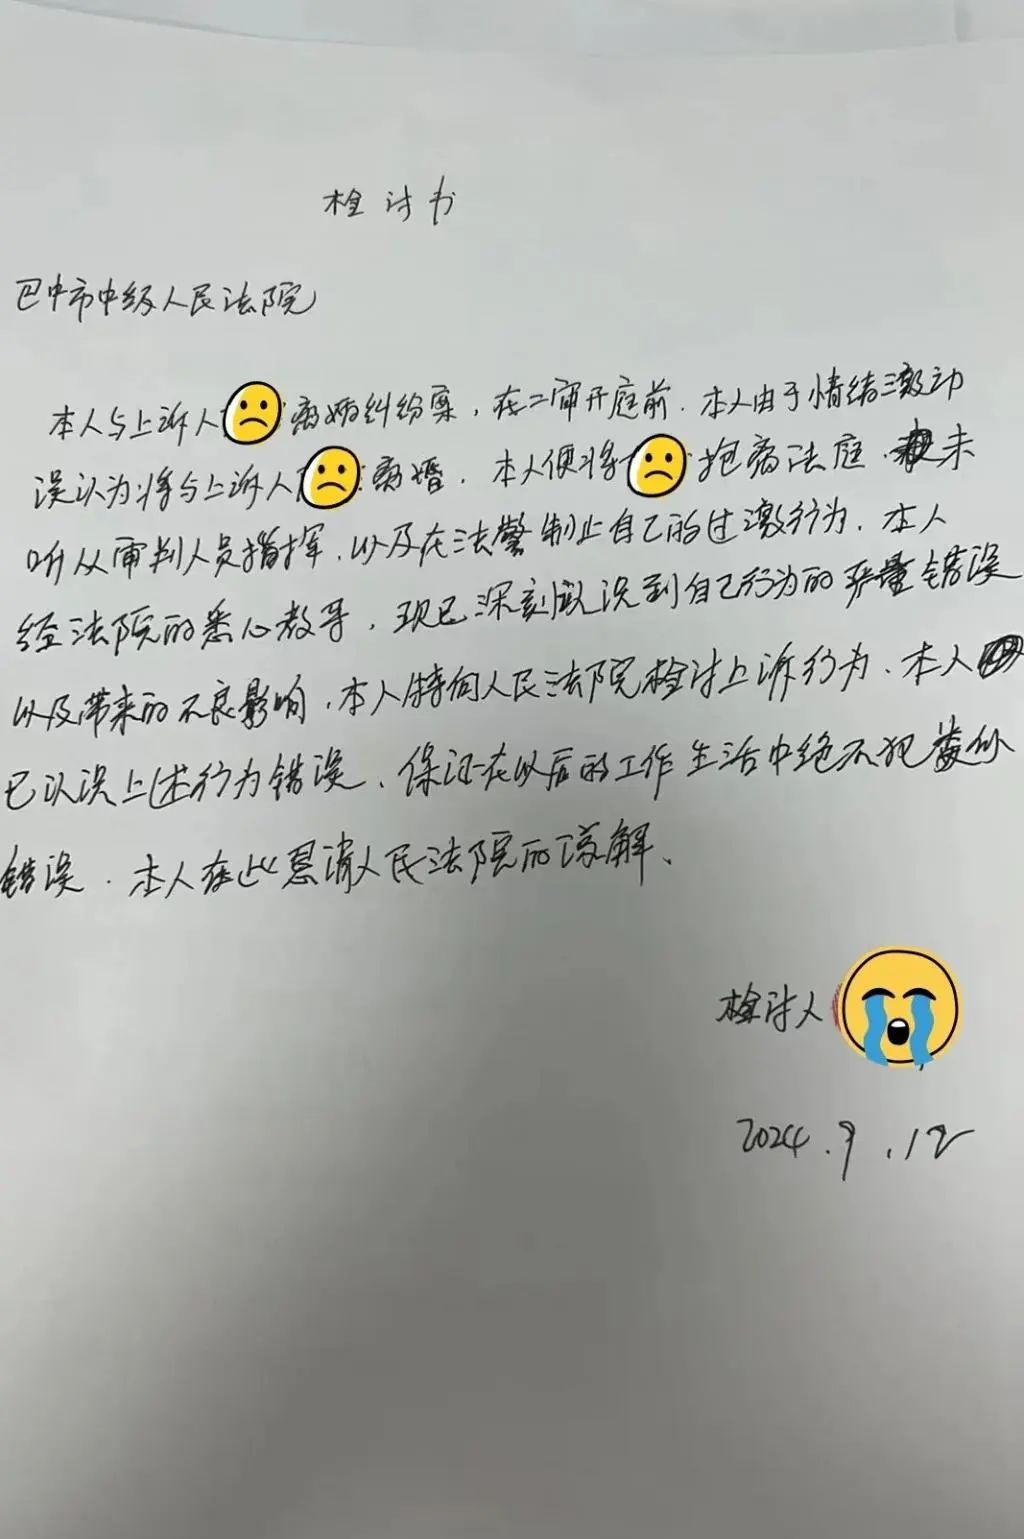 检讨书
巴中市中级人民法院
本人与上诉人离婚纠纷案，在二审开庭前．本人由于情结激动
误认为将与上诉人离婚．本人便将抱离法庭．未
听从审判人员指挥．以及在法警制止自己的过激行为．本人
经法院的悉心教导，现已深刻认识到自己行为的严重错误
以及带来的不良影响，本人特向人民法院检讨上诉行为．本人
已认误上述行为错误．保证在以后的工作生活中绝不犯类似
错误．本人在此恳请人民法院的谅解、
检讨人
2024.9.12